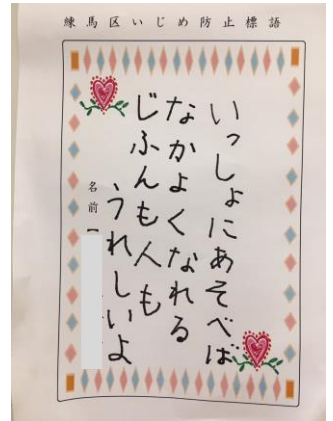 練馬区いじめ防止標語
いっしょにあそべば
なかよくなれる
じふんも人も
うれしいよ
名前【